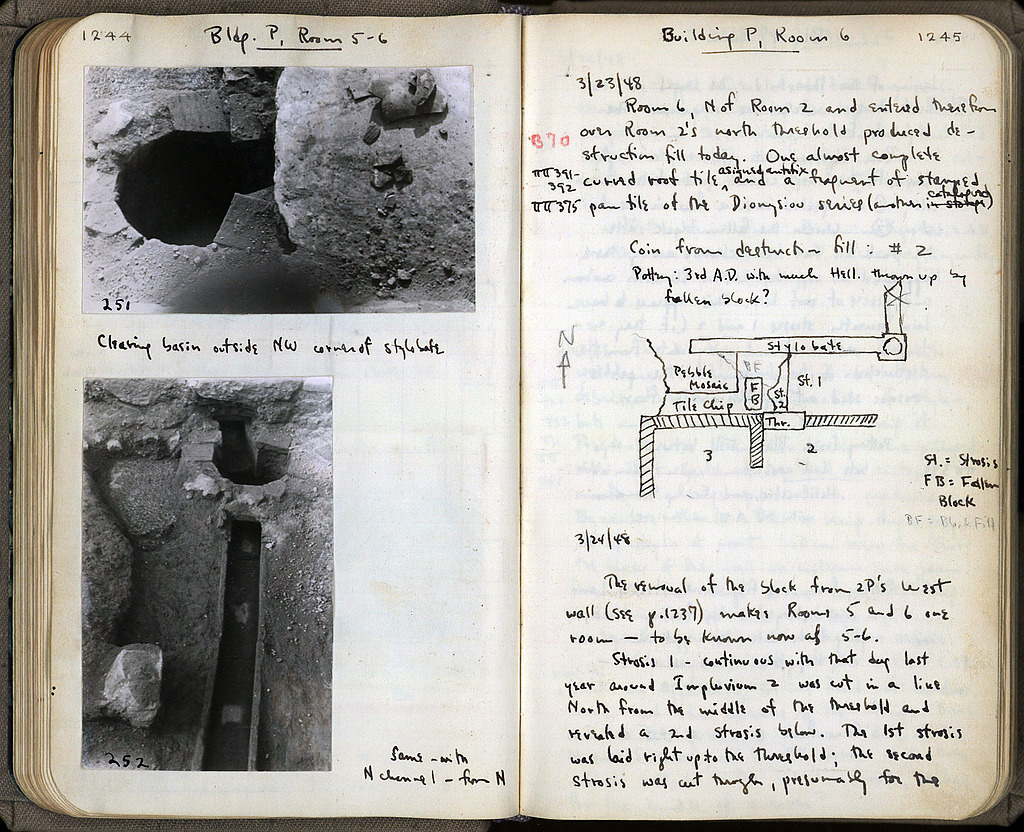 1244
Bldg. P, Room 5-6
251
Clearing basin outside NW corner of stylobate
252
Same - with
N channel - from N
Building P, Room 6
1245
3/23/48
Room 6, N of Room 2 and entered therefrom
B70
over Room 2's north threshold produced de-
struction fill today. One almost complete
assigned antefix
391-
392
curved roof tile and a fragment of stamped
catalogued
375
pan tile of the Dionysiou series (another in storage)
Coin from destruction fill: # 2
Pottery: 3rd A.D. with much Hell. thrown up by
fallen block?
N
Stylobate
Pebble
Mosaic
BF
FB
St. 1
St. 2
Tile Chip
Thr.
3
2
St. = Strosis
FB = Fallen
Block
BF =
3/24/48
The removal of the block from 2P's West
wall (see p.1237) makes Rooms 5 and 6 one
room — to be known now as 5-6.
Strosis 1 - continuous with that dug last
year around Impluvium 2 was cut in a line
North from the middle of the threshold and
revealed a 2nd strosis below. The 1st strosis
was laid right up to the threshold; the second
strosis was cut through, presumably for the